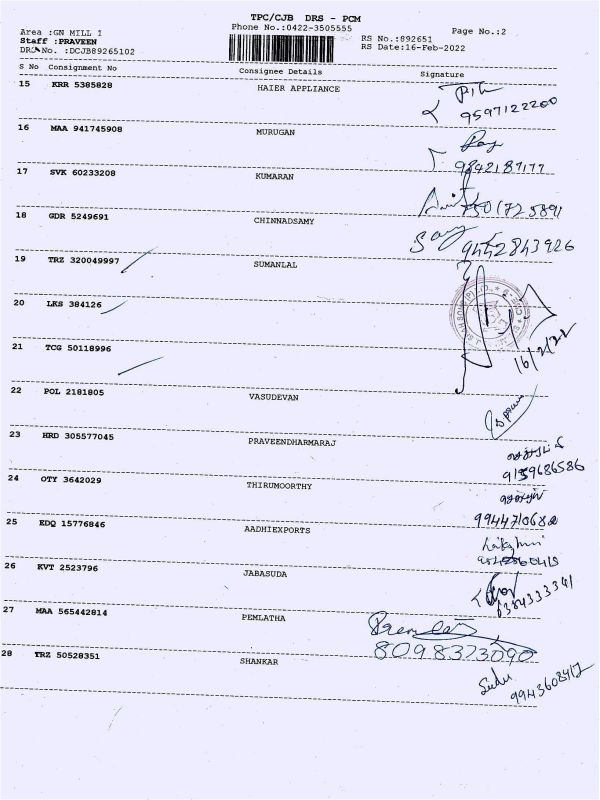 TPC/CJB DRS - PCM
Phone No.:0422-3505555
Page No.:2
Area :GN MILL 1
RS No.:892651
Staff :PRAVEEN
RS Date:16-Feb-2022
DRS No. :DCJB89265102
S No Consignment No Consignee Details Signature
15 KRR 5385828 HAIER APPLIANCE
9597122200
16 MAA 941745908 MURUGAN
9842187177
17 SVK 60233208 KUMARAN
18 GDR 5249691 CHINNADSAMY
9442843926
19 TRZ 320049997 SUMANLAL
20 LKS 384126
16/2/22
21 TCG 50118996
22 POL 2181805 VASUDEVAN
23 HRD 305577045 PRAVEENDHARMARAJ
9159686586
24 OTY 3642029 THIRUMOORTHY
25 EDQ 15776846 AADHIEXPORTS
26 KVT 2523796 JABASUDA
6384333341
27 MAA 565442814 PEMLATHA
8098373090
28 TRZ 50528351 SHANKAR
9943608412